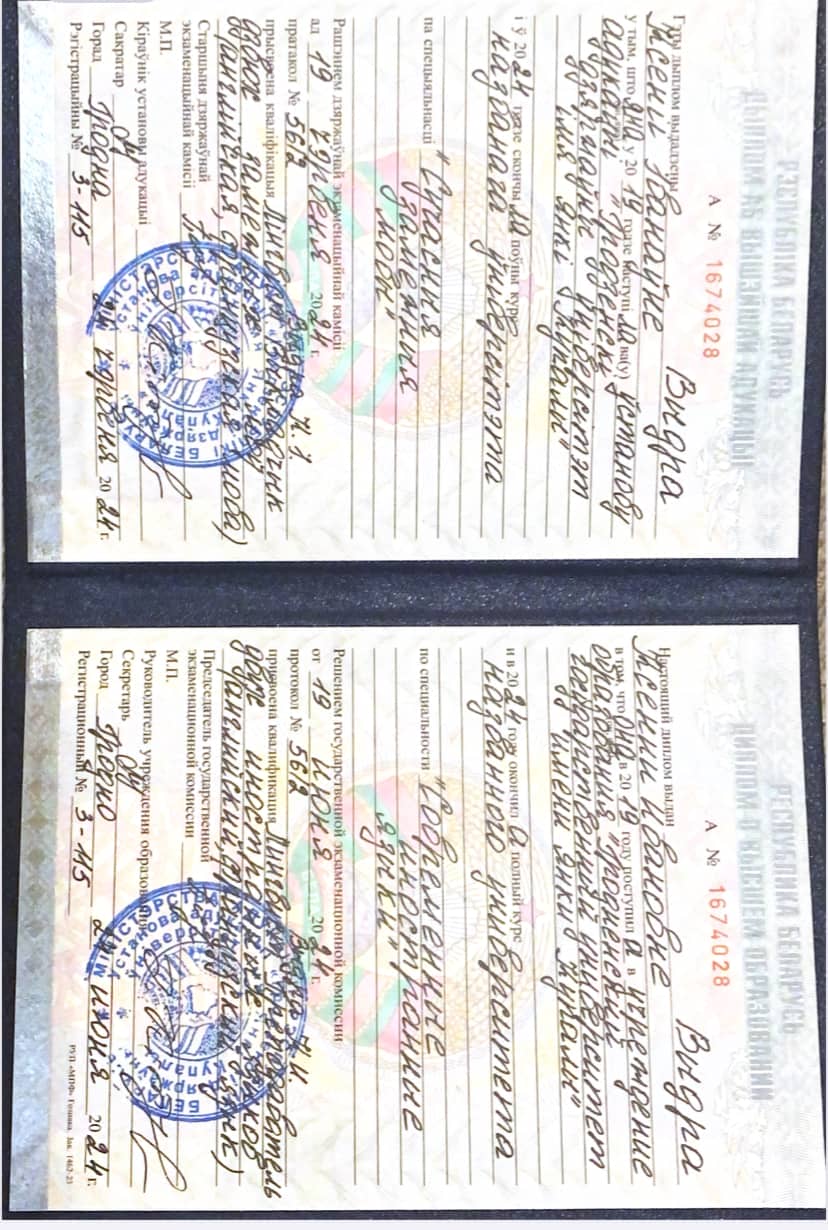 РЭСПУБЛІКА БЕЛАРУСЬ
ДЫПЛОМ АБ ВЫШЭЙШАЙ АДУКАЦЫІ
А № 1674028
Гэты дыплом выдадзены Выдра
Ксеніі Іванаўне
у тым, што яна у 2019 годзе паступіла ва(у) ўстанову
адукацыі "Гродзенскі
дзяржаўны ўніверсітэт
імя Янкі Купалы"
і ў 2024 годзе скончыла поўны курс
названага ўніверсітэта
па спецыяльнасці "Сучасныя
замежныя
мовы"
Рашэннем дзяржаўнай экзаменацыйнай камісіі
ад 19 чэрвеня 2024 г.
пратакол № 562 Выдра К. І.
прысвоена кваліфікацыя Лінгвіст. Выкладчык
дзвюх замежных моў
(англійская, французская мовы)
Старшыня дзяржаўнай
экзаменацыйнай камісіі
М.П.
Кіраўнік установы адукацыі
Сакратар
Горад Гродна 21 чэрвеня 2024 г.
Рэгістрацыйны № 3-115
РЕСПУБЛИКА БЕЛАРУСЬ
ДИПЛОМ О ВЫСШЕМ ОБРАЗОВАНИИ
А № 1674028
Настоящий диплом выдан Выдра
Ксении Ивановне
в том, что она в 2019 году поступила в учреждение
образования "Гродненский
государственный университет
имени Янки Купалы"
и в 2024 году окончила полный курс
названного университета
по специальности "Современные
иностранные
языки"
Решением государственной экзаменационной комиссии
от 19 июня 2024 г.
протокол № 562 Выдра К.И.
присвоена квалификация Лингвист. Преподаватель
двух иностранных языков
(английский, французский языки)
Председатель государственной
экзаменационной комиссии
М.П.
Руководитель учреждения образования
Секретарь
Город Гродно 21 июня 2024 г.
Регистрационный № 3-115
РУП «МПФ» Гознака. Зак. 1462-23